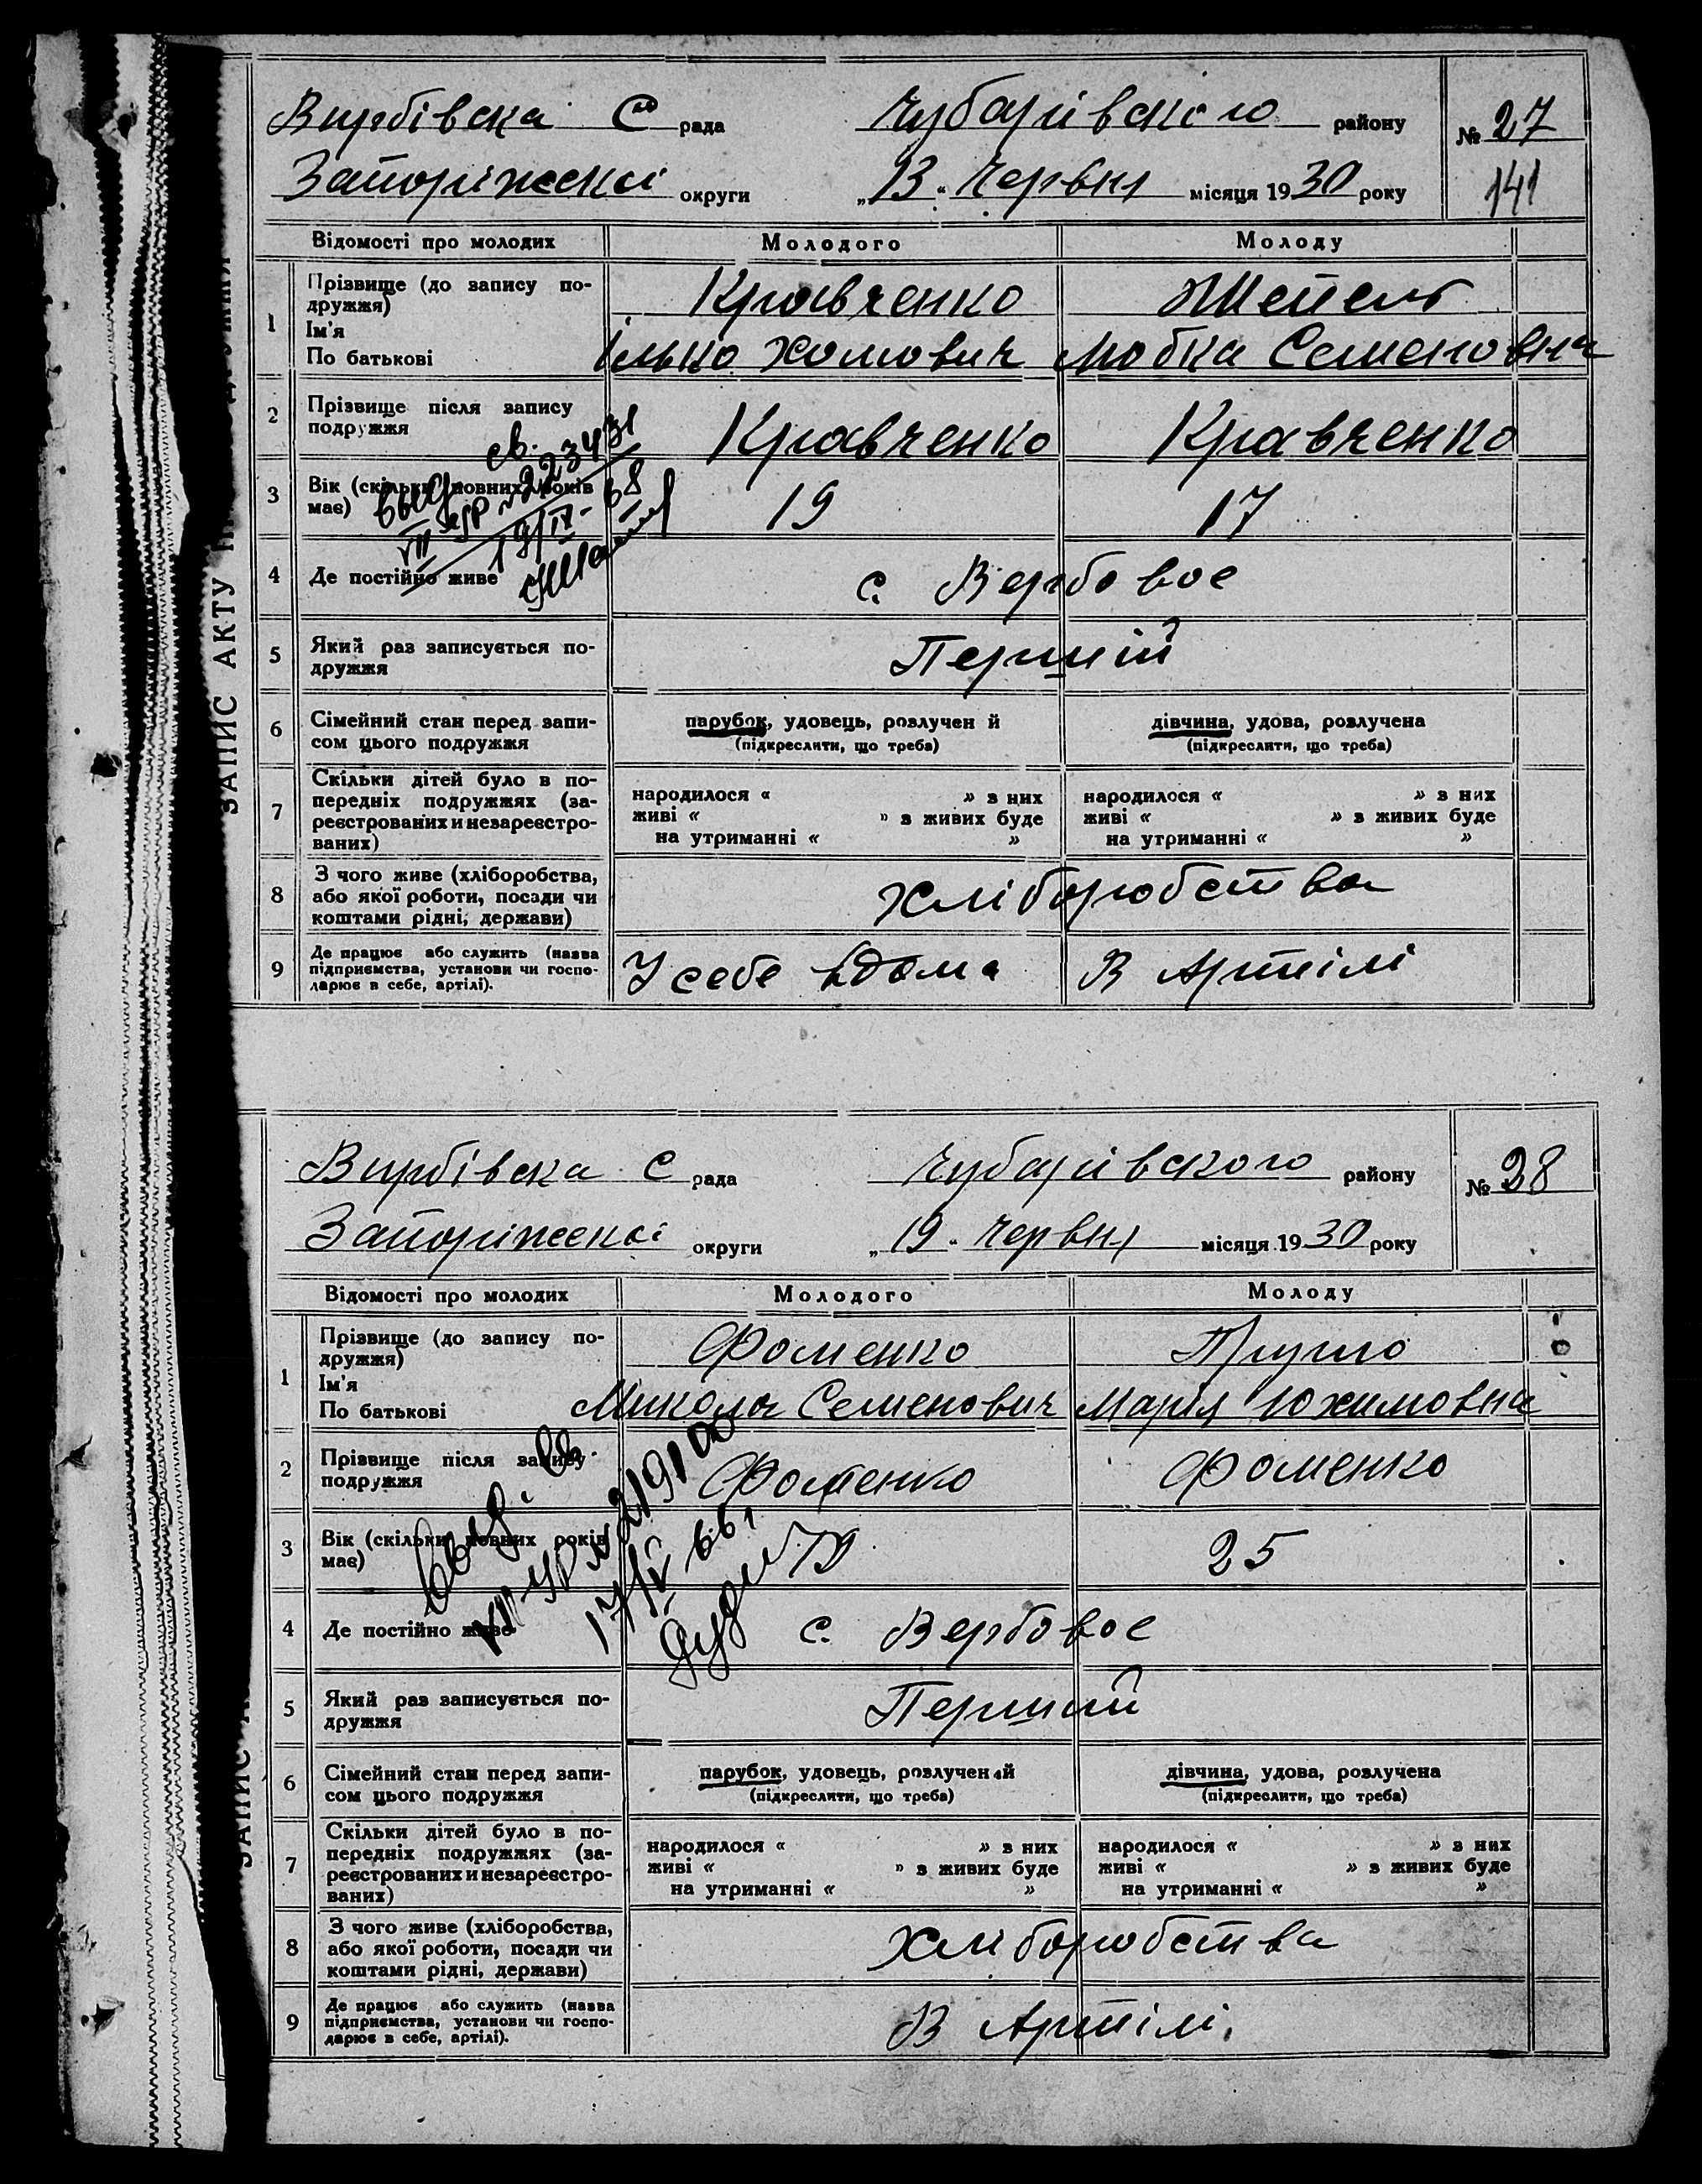 Вирбівска С рада Чубарівского району № 27
Запоріжскої округи „13“ Червня місяця 1930 року 141
Відомості про молодих Молодого Молоду
1 Прізвище (до запису по- Кравченко Шепель
дружжя)
Ім'я
По батькові Ілько Хомович Семеновна
2 Прізвище після запису Кравченко Кравченко
подружжя
3 Вік (скільки повних років 19 17
має)
4 Де постійно живе с. Вербовое
5 Який раз записується по- Перший
дружжя
6 Сімейний стан перед запи- парубок, удовець, розлучен й дівчина, удова, розлучена
сом цього подружжя (підкреслити, що треба) (підкреслити, що треба)
7 Скільки дітей було в по-
передніх подружжях (за- народилося « » з них народилося « » з них
реєстрованих и незареєстро- живі « » з живих буде живі « » з живих буде
ваних) на утриманні « » на утриманні « »
8 З чого живе (хліборобства,
або якої роботи, посади чи Хліборобства
коштами рідні, держави)
9 Де працює або служить (назва
підприємства, установи чи госпо- У себе вдома В Артілі
дарює в себе, артілі).
выд. св.
VII УР № 223431
19/IV-68
ЗАПИС АКТУ
Вирбівска С рада Чубарівского району № 28
Запоріжскої округи „19“ Червня місяця 1930 року
Відомості про молодих Молодого Молоду
1 Прізвище (до запису по- Фоменко
дружжя)
Ім'я
По батькові Микола Семенович Марія Юхимовна
2 Прізвище після запису Фоменко Фоменко
подружжя
3 Вік (скільки повних років 19 25
має)
4 Де постійно живе с. Вербовое
5 Який раз записується по- Перший
дружжя
6 Сімейний стан перед запи- парубок, удовець, розлучен й дівчина, удова, розлучена
сом цього подружжя (підкреслити, що треба) (підкреслити, що треба)
7 Скільки дітей було в по-
передніх подружжях (за- народилося « » з них народилося « » з них
реєстрованих и незареєстро- живі « » з живих буде живі « » з живих буде
ваних) на утриманні « » на утриманні « »
8 З чого живе (хліборобства,
або якої роботи, посади чи Хліборобства
коштами рідні, держави)
9 Де працює або служить (назва
підприємства, установи чи госпо- В Артілі.
дарює в себе, артілі).
выд. св.
17/V 66г
ЗАПИС